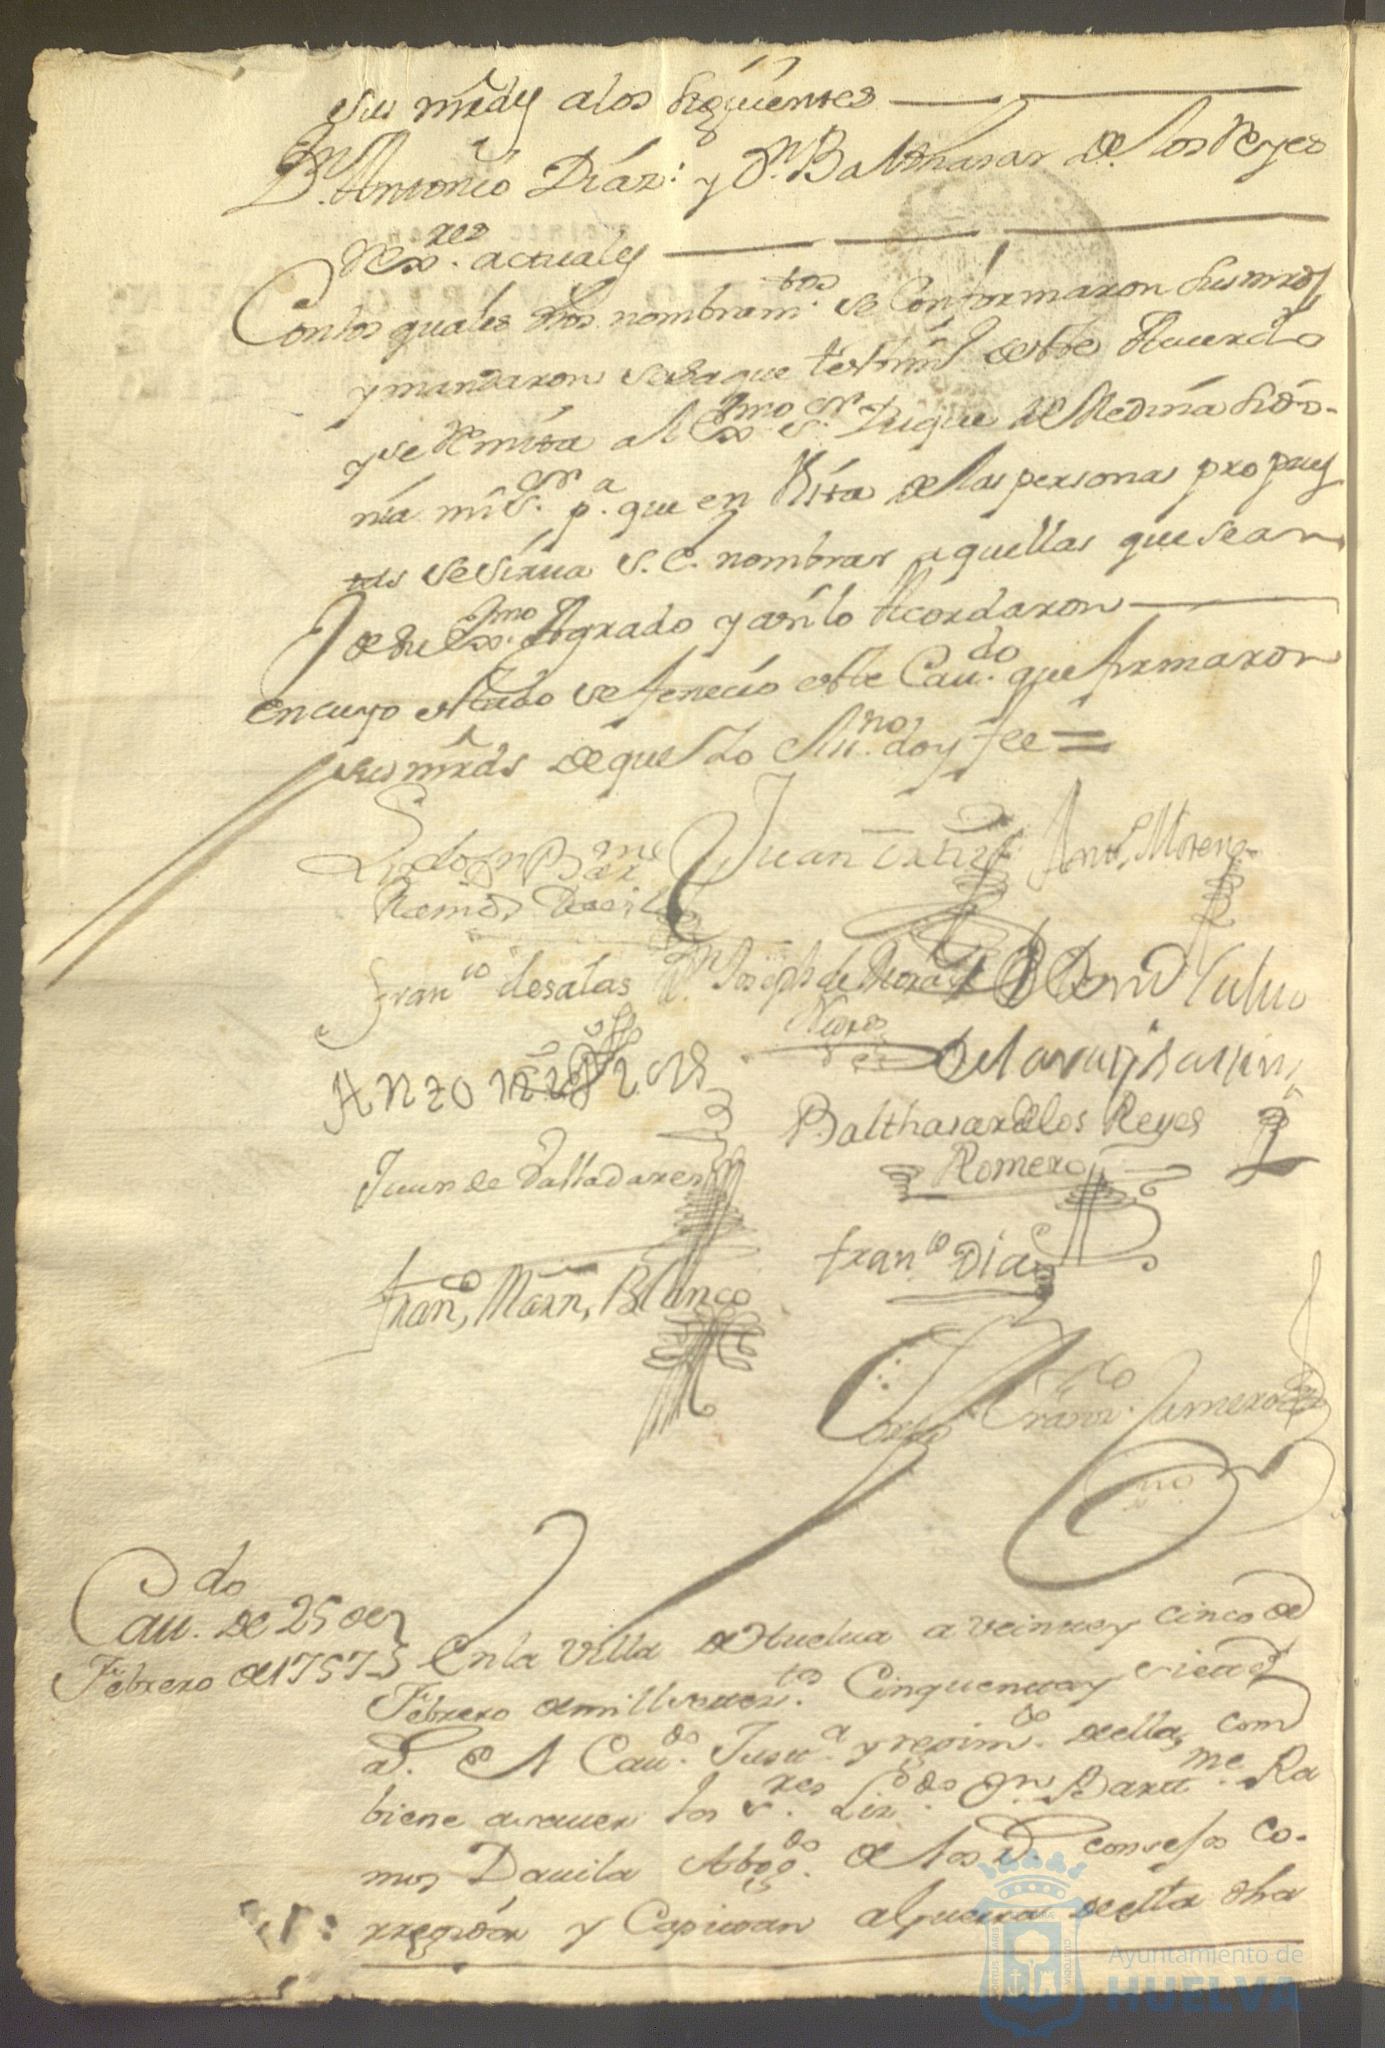 sus mrds a los siguientes
Dn. Antonio Díaz: y Dn. Balthasar de los Reyes
Rexres. actuales
Con los quales dhos nombramtos. se Conformaron sus mrds
y mandaron se saque testimo. deste Acuerdo
y se Remita al Exmo. sr. Duque de Medina Sido-
nia mi sr. pa. que en Vista de las personas propues
tas se sirua S. E. nombrar aquellas que sean
de su Exmo. Agrado y assi lo Acordaron
en cuyo estado se fenecio este Caudo. que firmaron
sus mrds de que Yo el Scriuno. doy fee =
Lizdo Dn Barme
Ramos Dauila
Juan Ortiz
Anto. Moreno
Franco desalas
Dn Joseph de Mora
Negro
Balthasar de los Reyes
Romero
Juan de Valladares
Franco Diaz
Franco, Marn, Blanco
Franzco. Romero
Caudo. de 25 de
Febrero de 1757
En la Villa de Huelua a veinte y cinco de
Febrero de mill setectos. Cinquenta y siete
as. El Caudo. Justa. y regimto. de ella, com
biene a sauer los sres. Lizdo. Dn. Bartme. Ra
mos Dauila Abogdo. de los Rs. consejos Co-
rregidor y Capitan a Guerra de esta dha
Ayuntamiento de
HUELVA